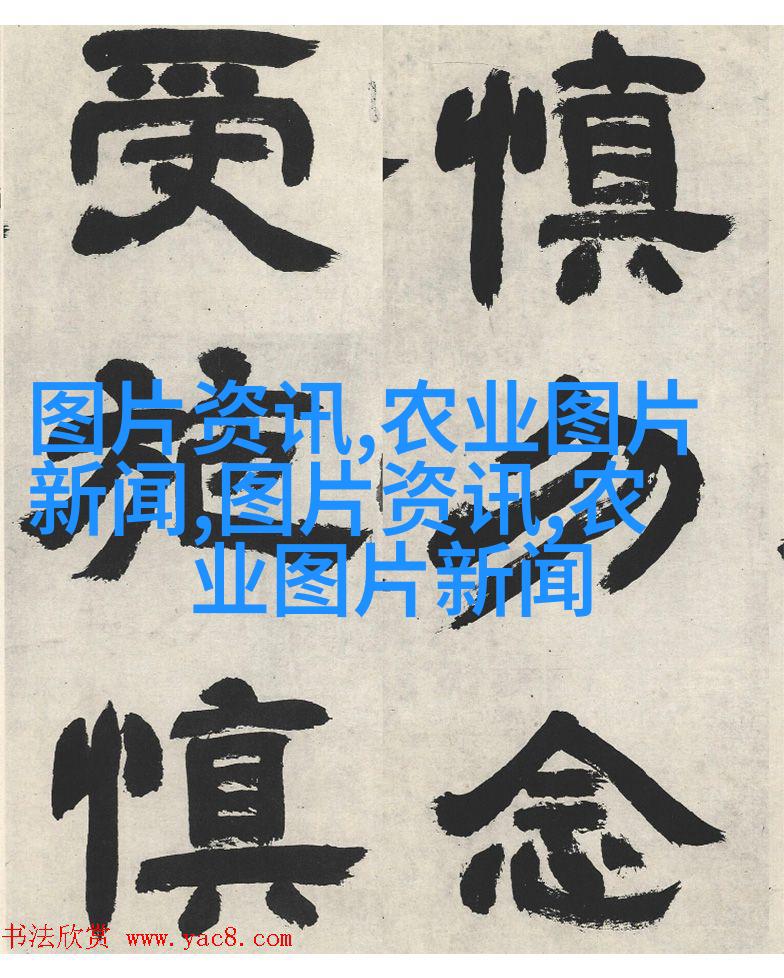 慎勿念
受施慎
图片资讯,农业图片
新闻,图片资讯,农
业图片新闻
书法欣赏 www.yac8.com